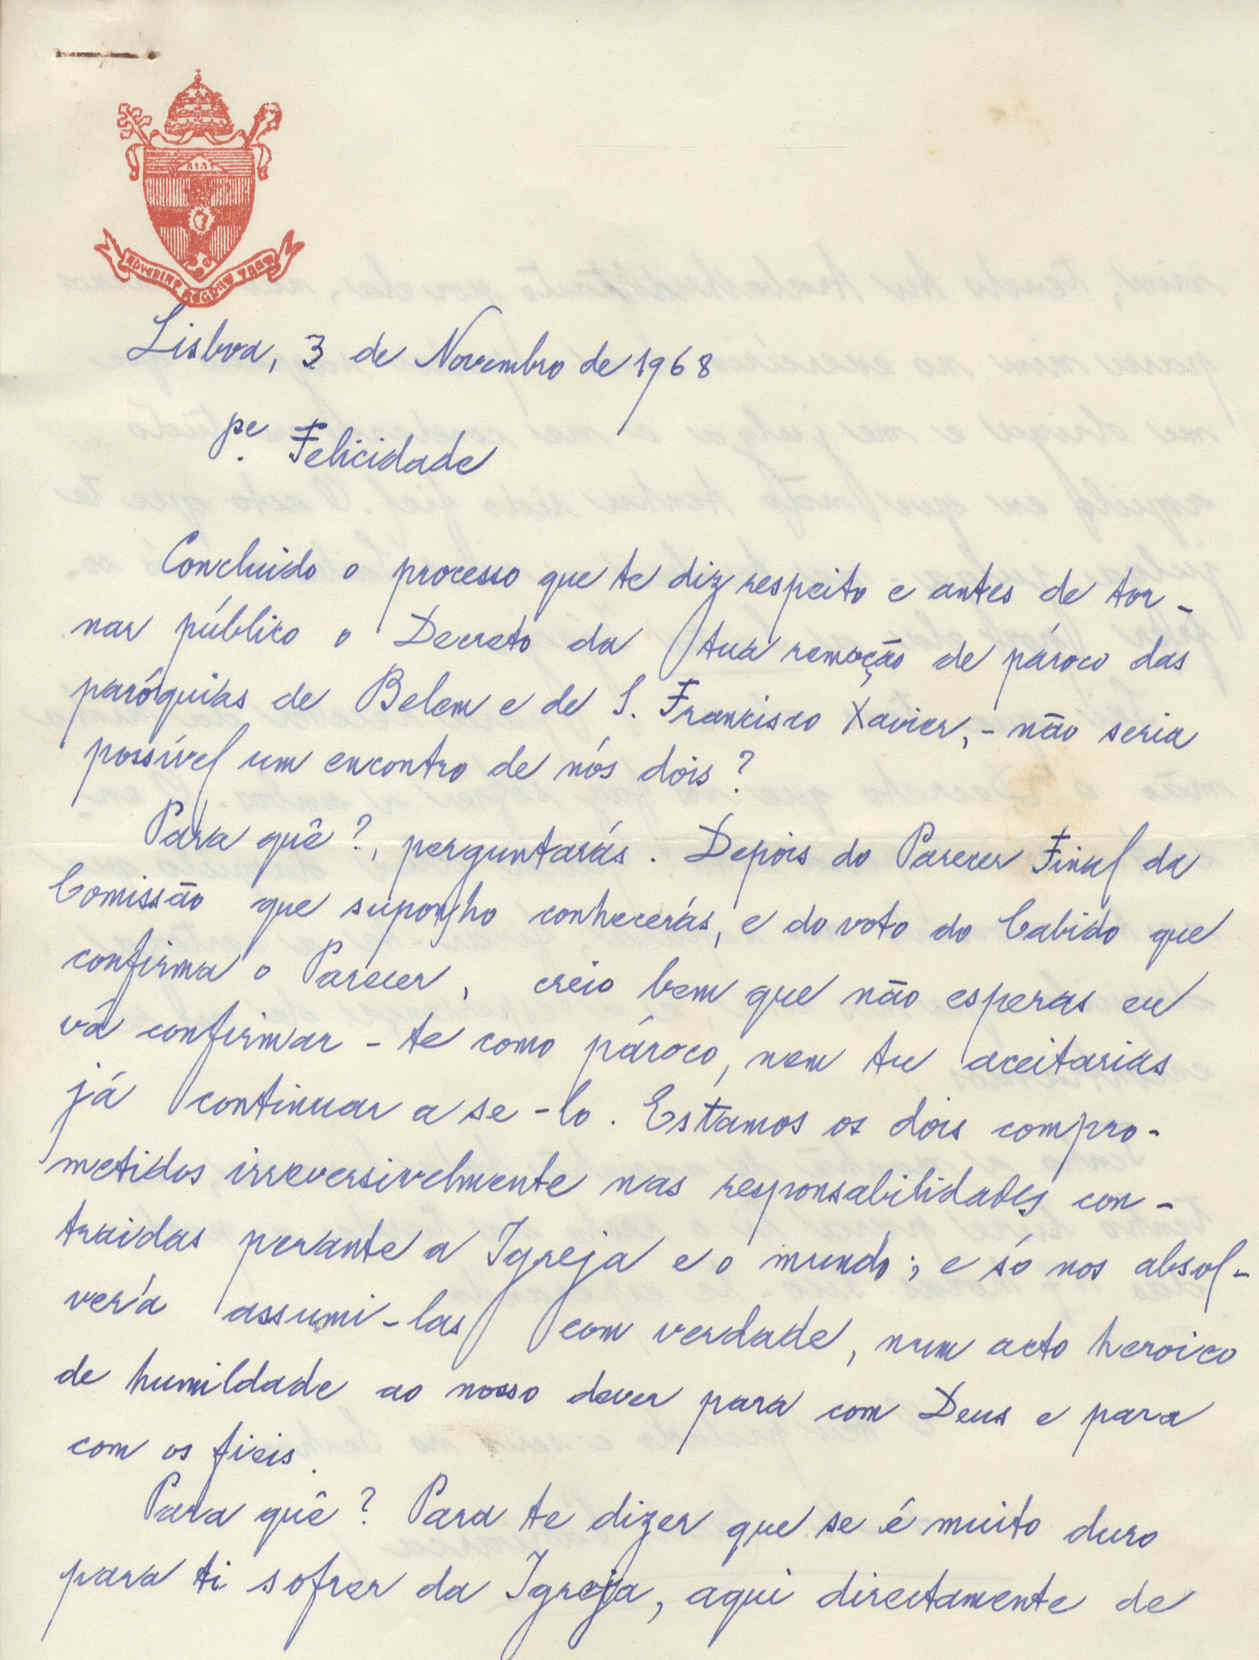 ADVENIAT REGNUM TUUM
Lisboa, 3 de Novembro de 1968
Pe. Felicidade
Concluido o processo que te diz respeito e antes de tor-
nar público o Decreto da tua remoção de pároco das
paróquias de Belem e de S. Francisco Xavier, - não seria
possível um encontro de nós dois?
Para quê?, perguntarás. Depois do Parecer Final da
Comissão que suponho conhecerás, e do voto do Cabido que
confirma o Parecer, creio bem que não esperas eu
vá confirmar-te como pároco, nem tu aceitarias
já continuar a se-lo. Estamos os dois compro-
metidos irreversivelmente nas responsabilidades con-
traidas perante a Igreja e o mundo; e só nos absol-
verá assumi-las com verdade, num acto heroico
de humildade ao nosso dever para com Deus e para
com os fieis.
Para quê? Para te dizer que se é muito duro
para ti sofrer da Igreja, aqui directamente de